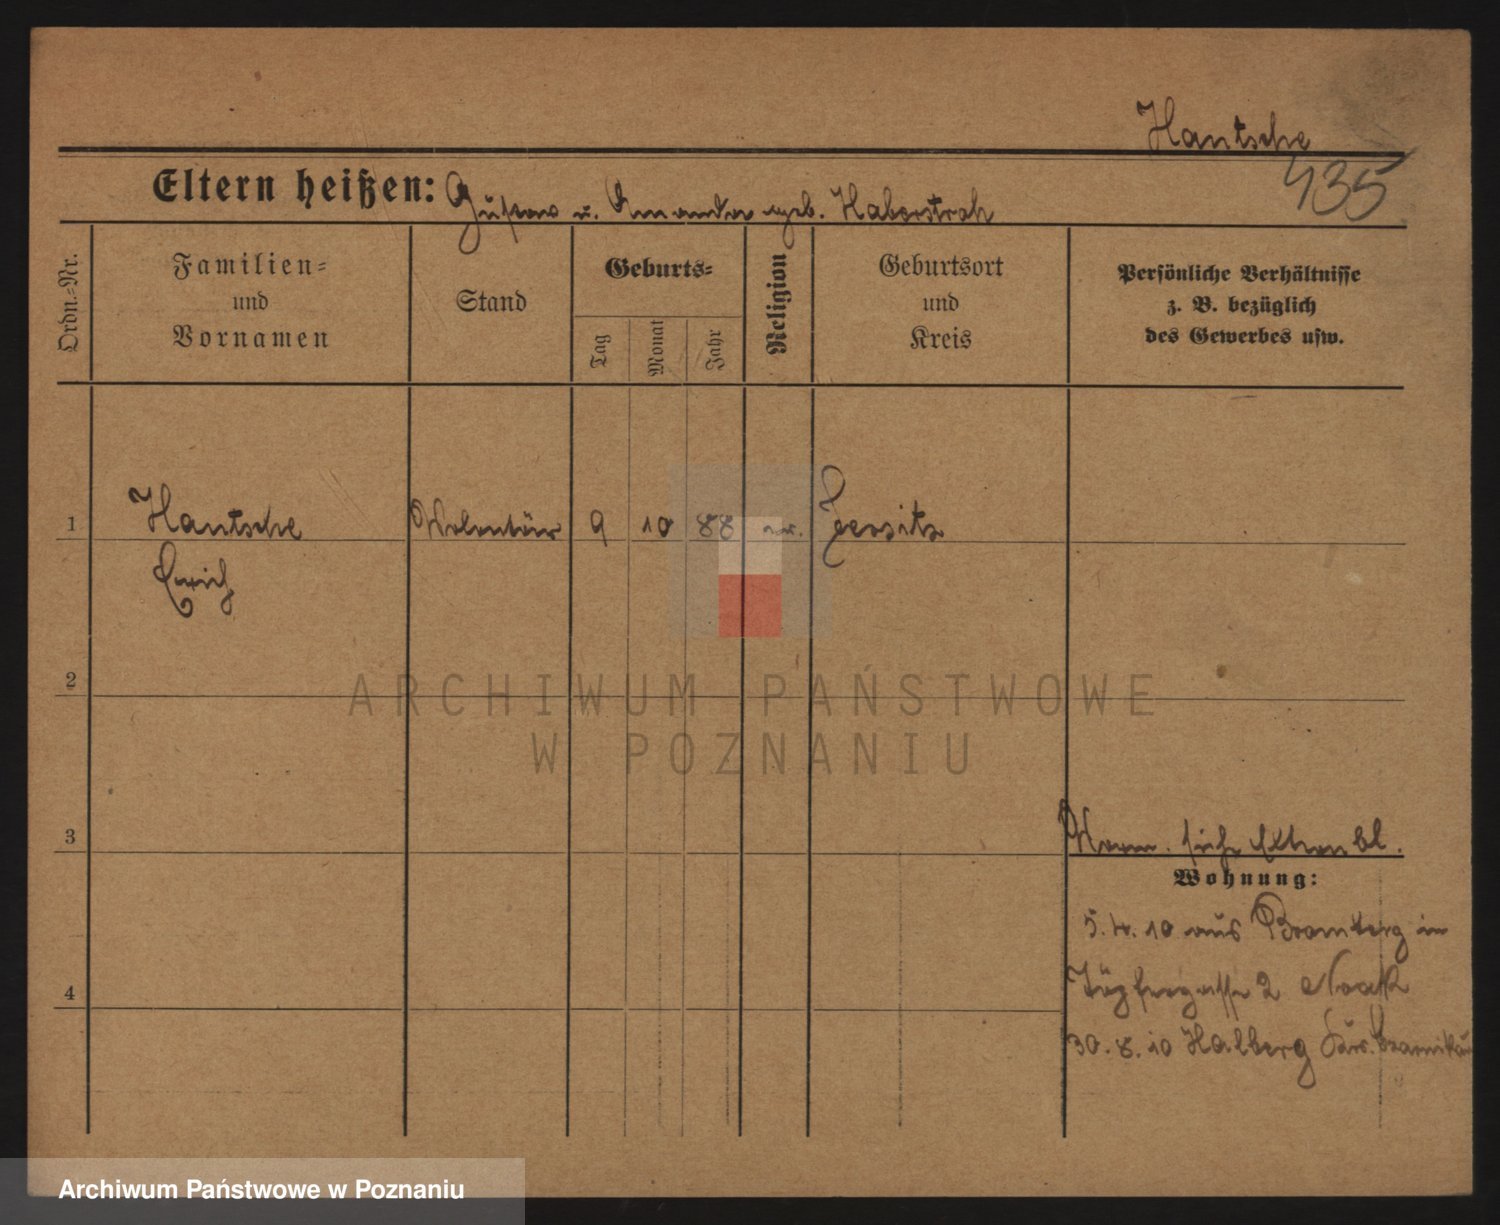 Hantsche
435
Eltern heißen: Gustav u. Amanda geb. Haberstroh
Ordn.-Nr.
Familien-
und
Vornamen
Stand
Geburts-
Tag
Monat
Jahr
Religion
Geburtsort
und
Kreis
Persönliche Verhältnisse
z. B. bezüglich
des Gewerbes usw.
1
Hantsche
Erich
Volontär
9
10
88
ev.
Jersitz
2
3
4
Verm. siehe Elternbl.
Wohnung:
5.4.10 aus Bromberg in
Töpfergasse 2 Noak
30.8.10 Halberg
ARCHIWUM PAŃSTWOWE
W POZNANIU
Archiwum Państwowe w Poznaniu